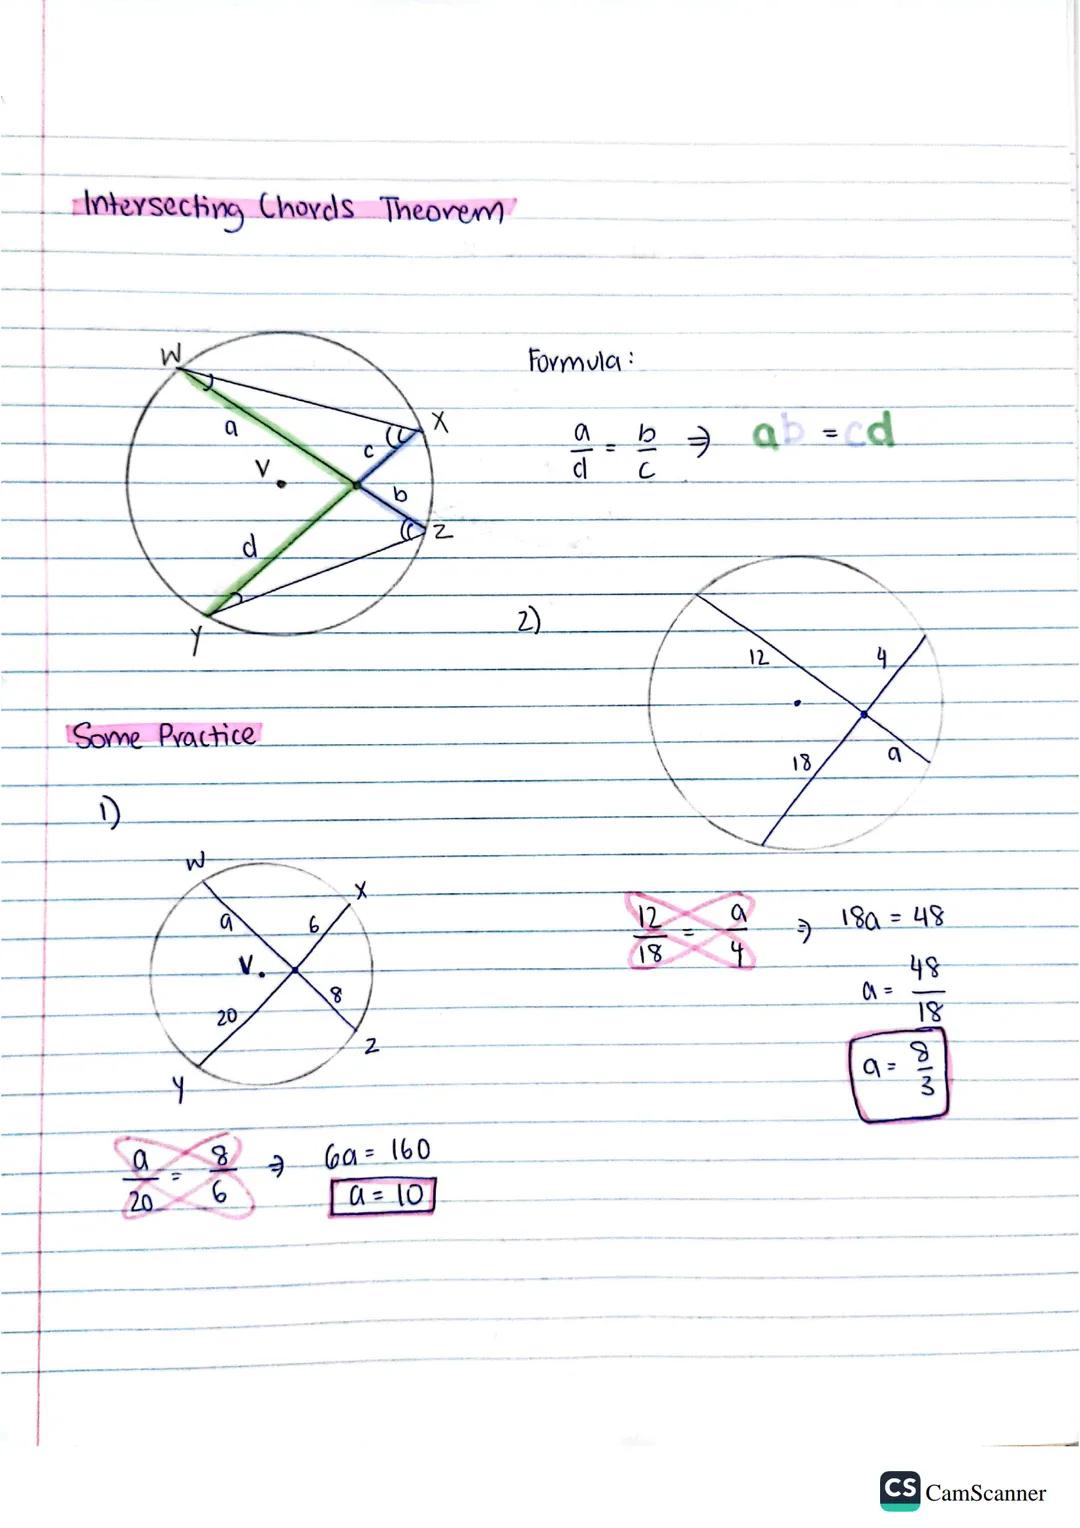 Intersecting Chords Theorem
W
X
a
c
V
b
Z
d
Y
Formula:
a/d = b/c ⇒ ab = cd
2)
12
4
18
a
Some Practice
1)
W
X
a
6
V.
8
20
Z
Y
12/18 = a/4 ⇒ 18a = 48
a = 48/18
a = 8/3
a/20 = 8/6 ⇒ 6a = 160
a = 10
CS CamScanner